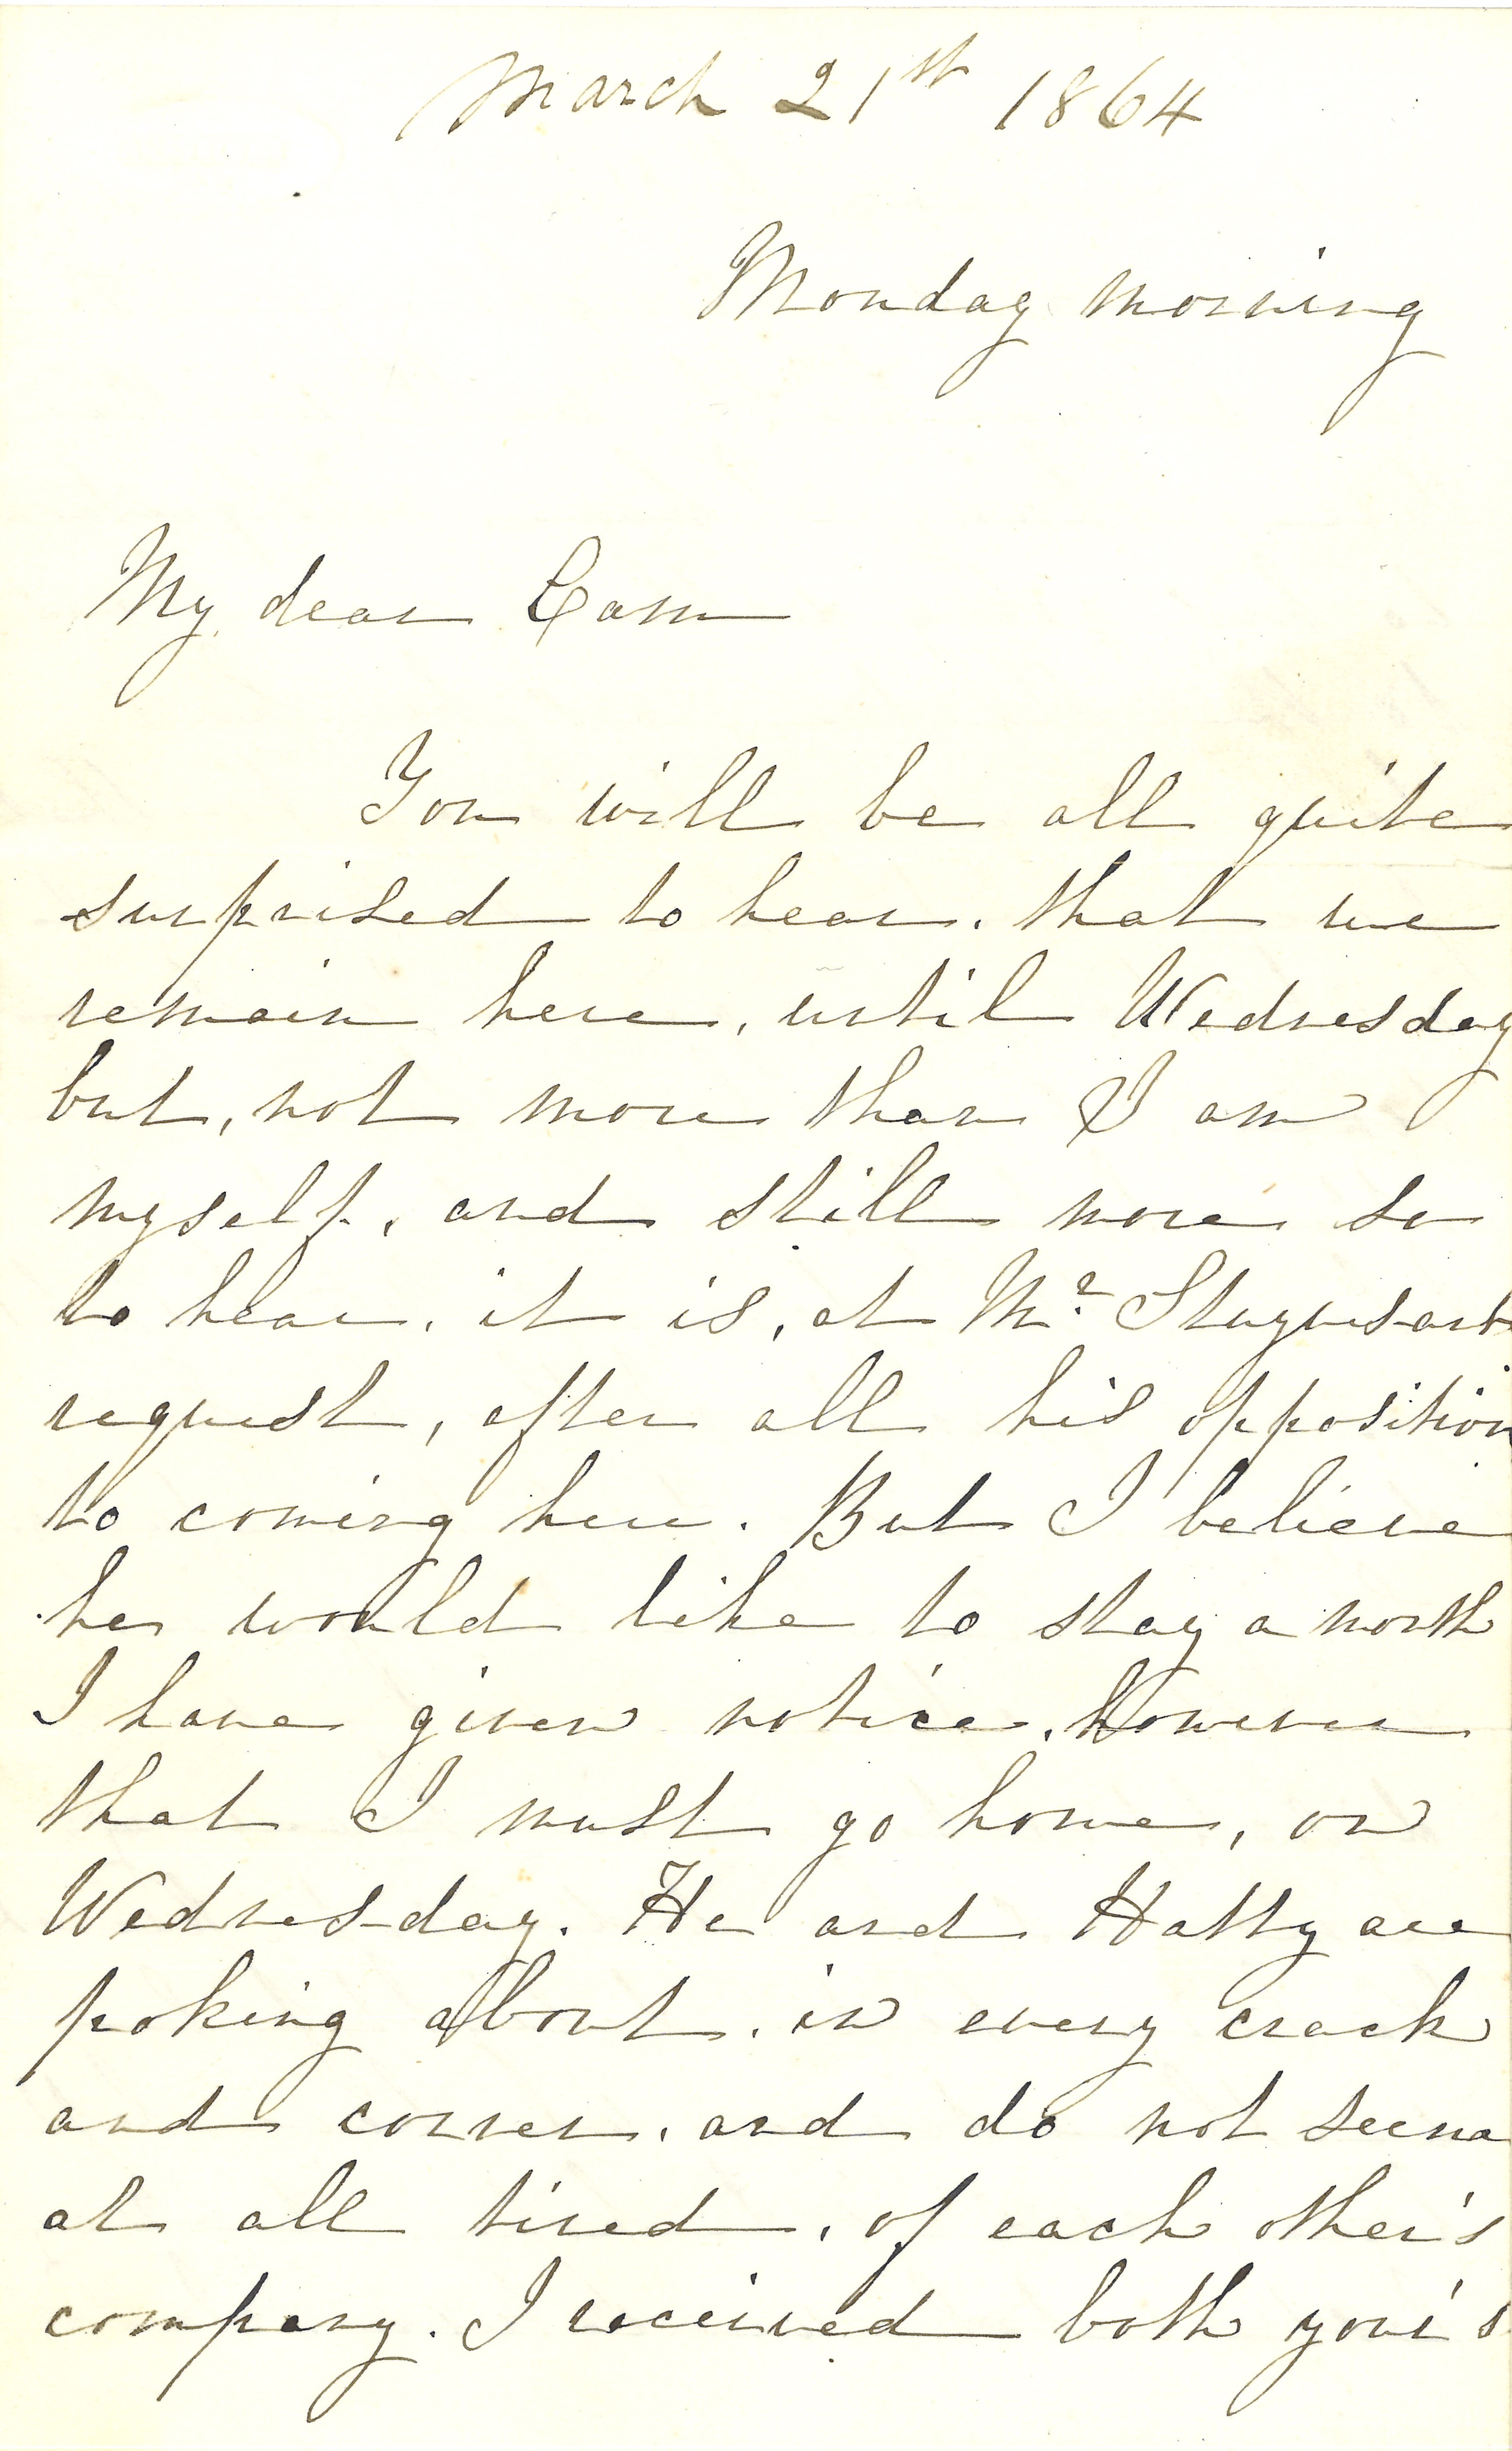 March 21st 1864
Monday morning
My dear Cam
You will be all quite
surprised to hear, that we
remain here, until Wednesday
but, not more than I am
myself, and still more so
to hear, it is, at Mr. Stuyvesant
request, after all his opposition
to coming here. But I believe
he would like to stay a month
I have given notice, however
that I must go home, on
Wednesday. He and Hatty are
poking about, in every crack
and corner, and do not seem
at all tired, of each other's
company. I received both your's